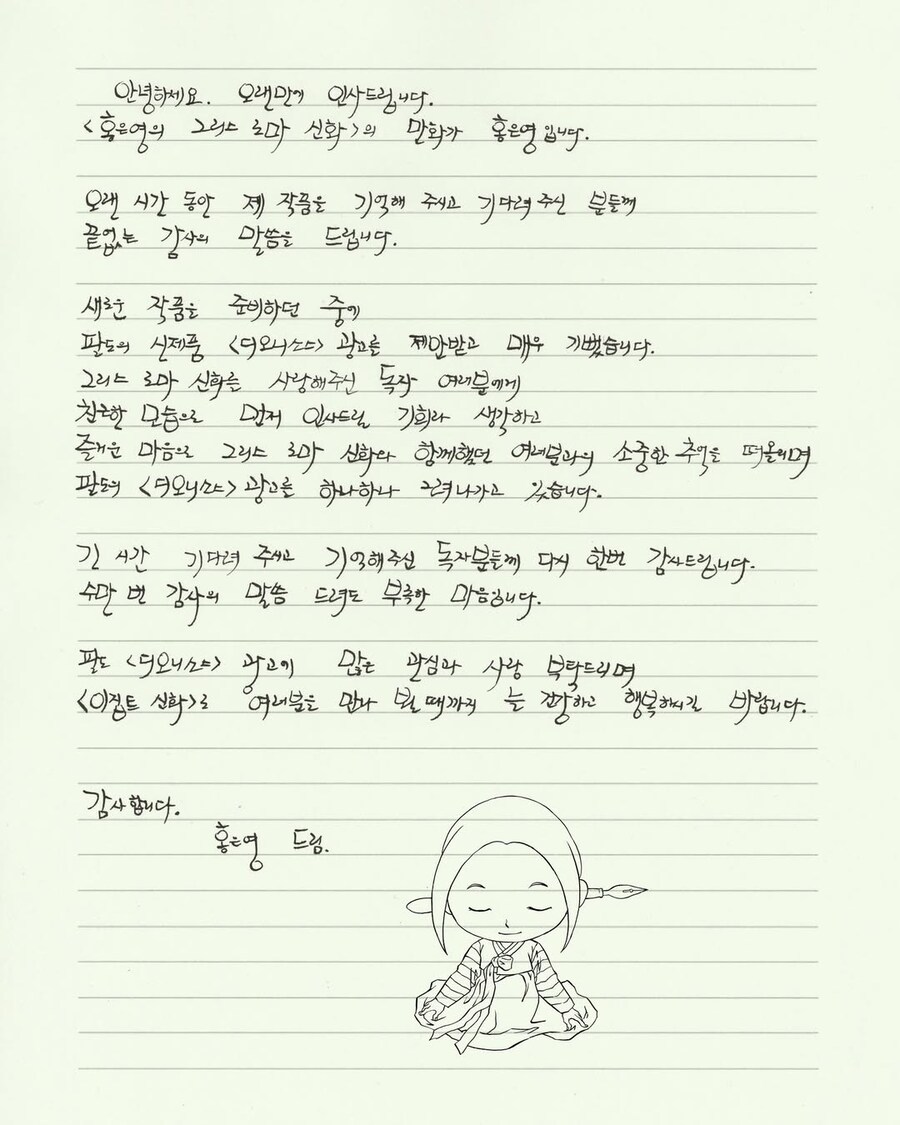 안녕하세요. 오랜만에 인사드립니다.
<홍은영의 그리스 로마 신화>의 만화가 홍은영입니다.
오랜 시간 동안 제 작품을 기억해 주시고 기다려 주신 분들께
끝없는 감사의 말씀을 드립니다.
새로운 작품을 준비하던 중에
팔도의 신제품 <더오니소스> 광고를 제안받고 매우 기뻤습니다.
그리스 로마 신화를 사랑해주신 독자 여러분에게
친근한 모습으로 먼저 인사드릴 기회라 생각하고
즐거운 마음으로 그리스 로마 신화와 함께했던 여러분과의 소중한 추억을 떠올리며
팔도의 <더오니소스> 광고를 하나하나 그려나가고 있습니다.
긴 시간 기다려 주시고 기억해주신 독자분들께 다시 한번 감사드립니다.
수만 번 감사의 말씀 드려도 부족한 마음입니다.
팔도 <더오니소스> 광고에 많은 관심과 사랑 부탁드리며
<이집트 신화>로 여러분을 만나 뵐 때까지 늘 건강하고 행복하시길 바랍니다.
감사합니다.
홍은영 드림.